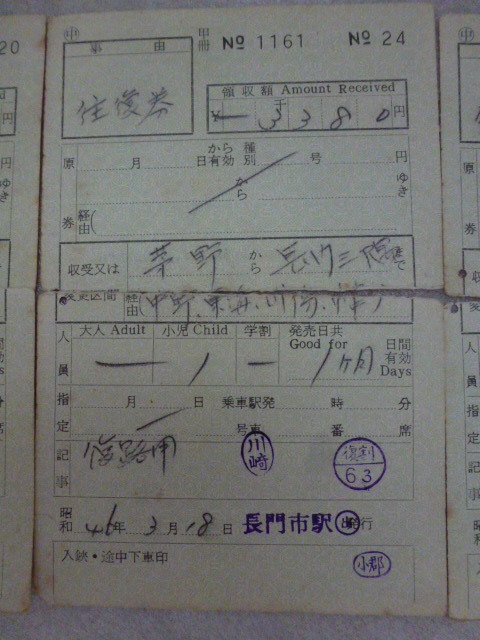 20
㊥
事由
甲冊 No 1161 No 24
往復券
領収額 Amount Received
千
¥ 3380円
原券
月 日有効
から 種別 号 円
から ゆき
経由
収受又は
茅野 から 長門三隅 まで
変更区間
経由
人員
大人 Adult 小児 Child 学割 発売日共 Good for 日間有効 Days
一 1 一 1ケ月
指定
月 日 乗車駅発 時 分
号車 番 席
記事
復路用
川崎
復割 63
昭和 46年 3月 18日 長門市駅 発行
入鋏・途中下車印
小郡